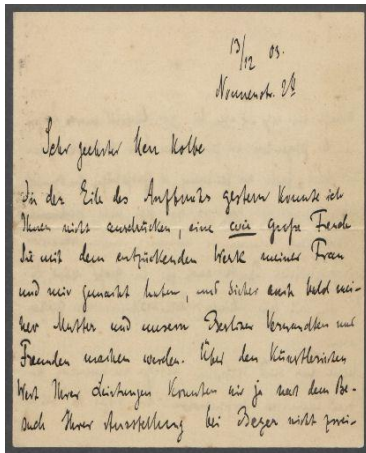 13/12 03.
Nonnenstr. 2b
Sehr geehrter Herr Kolbe
In der Eile des Aufbruchs gestern konnte ich
Ihnen nicht ausdrücken, eine wie große Freude
Sie mit dem entzückenden Werk meiner Frau
und mir gemacht haben, und sicher auch bald mei-
ner Mutter und unsern Berliner Verwandten und
Freunden machen werden. Über den künstlerischen
Wert Ihrer Leistungen konnten wir ja nach dem Be-
such Ihrer Ausstellung bei Beyer nicht zwei-